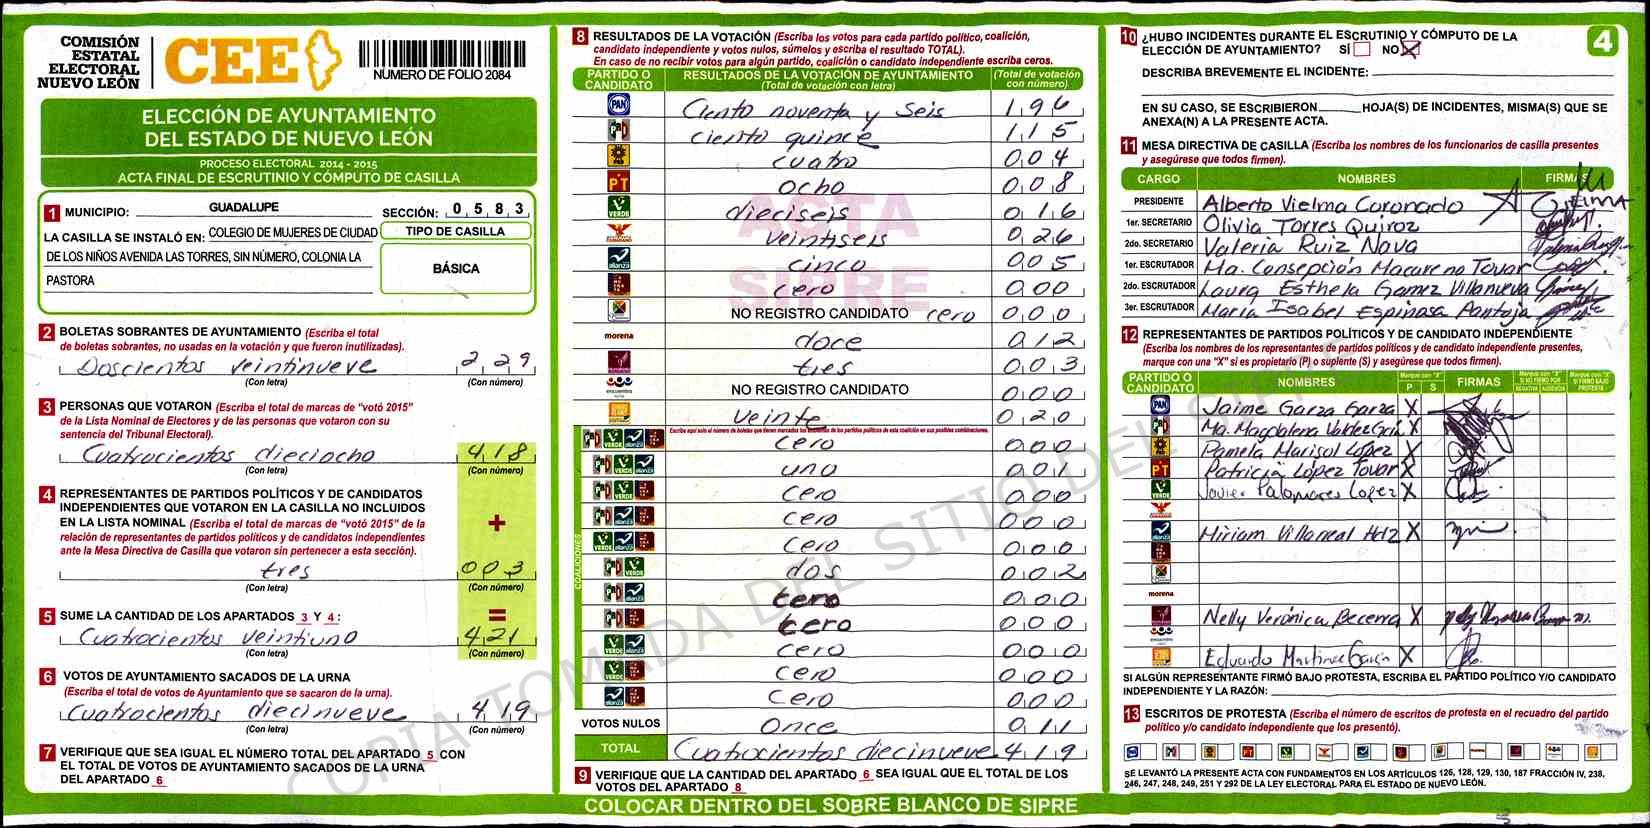 COMISIÓN
ESTATAL
ELECTORAL
NUEVO LEÓN
CEE
NÚMERO DE FOLIO 2084
ELECCIÓN DE AYUNTAMIENTO
DEL ESTADO DE NUEVO LEÓN
PROCESO ELECTORAL 2014 - 2015
ACTA FINAL DE ESCRUTINIO Y CÓMPUTO DE CASILLA
1 MUNICIPIO: GUADALUPE SECCIÓN: 0 5 8 3
LA CASILLA SE INSTALÓ EN: COLEGIO DE MUJERES DE CIUDAD
DE LOS NIÑOS AVENIDA LAS TORRES, SIN NÚMERO, COLONIA LA
PASTORA
TIPO DE CASILLA
BÁSICA
2 BOLETAS SOBRANTES DE AYUNTAMIENTO (Escriba el total
de boletas sobrantes, no usadas en la votación y que fueron inutilizadas).
Doscientos veintinueve 2 29
(Con letra) (Con número)
3 PERSONAS QUE VOTARON (Escriba el total de marcas de "votó 2015"
de la Lista Nominal de Electores y de las personas que votaron con su
sentencia del Tribunal Electoral).
Cuatrocientos dieciocho 418
(Con letra) (Con número)
4 REPRESENTANTES DE PARTIDOS POLÍTICOS Y DE CANDIDATOS
INDEPENDIENTES QUE VOTARON EN LA CASILLA NO INCLUIDOS
EN LA LISTA NOMINAL (Escriba el total de marcas de "votó 2015" de la
relación de representantes de partidos políticos y de candidatos independientes
ante la Mesa Directiva de Casilla que votaron sin pertenecer a esta sección).
+
tres 003
(Con letra) (Con número)
=
5 SUME LA CANTIDAD DE LOS APARTADOS 3 Y 4:
Cuatrocientos veintiuno 421
(Con letra) (Con número)
6 VOTOS DE AYUNTAMIENTO SACADOS DE LA URNA
(Escriba el total de votos de Ayuntamiento que se sacaron de la urna).
Cuatrocientos diecinueve 419
(Con letra) (Con número)
7 VERIFIQUE QUE SEA IGUAL EL NÚMERO TOTAL DEL APARTADO 5 CON
EL TOTAL DE VOTOS DE AYUNTAMIENTO SACADOS DE LA URNA
DEL APARTADO 6
8 RESULTADOS DE LA VOTACIÓN (Escriba los votos para cada partido político, coalición,
candidato independiente y votos nulos, súmelos y escriba el resultado TOTAL).
En caso de no recibir votos para algún partido, coalición o candidato independiente escriba ceros.
PARTIDO O CANDIDATO RESULTADOS DE LA VOTACIÓN DE AYUNTAMIENTO (Total de votación con letra) (Total de votación con número)
PAN Ciento noventa y Seis 196
PRI ciento quince 115
PRD cuatro 004
PT ocho 008
VERDE dieciseis 016
veintiseis 026
alianza cinco 005
cero 000
NO REGISTRO CANDIDATO cero 000
morena doce 012
tres 003
NO REGISTRO CANDIDATO 000
veinte 020
COALICIONES
cero 000
uno 001
cero 000
cero 000
cero 000
dos 002
cero 000
cero 000
cero 000
cero 000
cero 000
VOTOS NULOS Once 011
TOTAL Cuatrocientos diecinueve 419
9 VERIFIQUE QUE LA CANTIDAD DEL APARTADO 6 SEA IGUAL QUE EL TOTAL DE LOS
VOTOS DEL APARTADO 8
ACTA
SIPRE
COPIA TOMADA DEL SITIO DEL SIPRE
10 ¿HUBO INCIDENTES DURANTE EL ESCRUTINIO Y CÓMPUTO DE LA
ELECCIÓN DE AYUNTAMIENTO? SÍ NO X
4
DESCRIBA BREVEMENTE EL INCIDENTE:
EN SU CASO, SE ESCRIBIERON HOJA(S) DE INCIDENTES, MISMA(S) QUE SE
ANEXA(N) A LA PRESENTE ACTA.
11 MESA DIRECTIVA DE CASILLA (Escriba los nombres de los funcionarios de casilla presentes
y asegúrese que todos firmen).
CARGO NOMBRES FIRMAS
PRESIDENTE Alberto Vielma Coronado
1er. SECRETARIO Olivia Torres Quiroz
2do. SECRETARIO Valeria Ruiz Nava
1er. ESCRUTADOR Ma. Consepción Macareno Tovar
2do. ESCRUTADOR Laura Esthela Gamez Villanueva
3er. ESCRUTADOR Maria Isabel Espinosa Pantoja
12 REPRESENTANTES DE PARTIDOS POLÍTICOS Y DE CANDIDATO INDEPENDIENTE
(Escriba los nombres de los representantes de partidos políticos y de candidato independiente presentes,
marque con una "X" si es propietario (P) o suplente (S) y asegúrese que todos firmen).
PARTIDO O CANDIDATO NOMBRES P S FIRMAS
PAN Jaime Garza Garza X
Ma. Magdalena Valdez X
Pamela Marisol López X
PT Patricia López Tovar X
VERDE Javier Palomares Lopez X
Miriam Villarreal Hdz X
morena
Nelly Verónica Becerra X
Eduardo Martinez Garcia X
SI ALGÚN REPRESENTANTE FIRMÓ BAJO PROTESTA, ESCRIBA EL PARTIDO POLÍTICO Y/O CANDIDATO
INDEPENDIENTE Y LA RAZÓN:
13 ESCRITOS DE PROTESTA (Escriba el número de escritos de protesta en el recuadro del partido
político y/o candidato independiente que los presentó).
SE LEVANTÓ LA PRESENTE ACTA CON FUNDAMENTOS EN LOS ARTÍCULOS 126, 128, 129, 130, 187 FRACCIÓN IV, 238,
246, 247, 248, 249, 251 Y 292 DE LA LEY ELECTORAL PARA EL ESTADO DE NUEVO LEÓN.
COLOCAR DENTRO DEL SOBRE BLANCO DE SIPRE